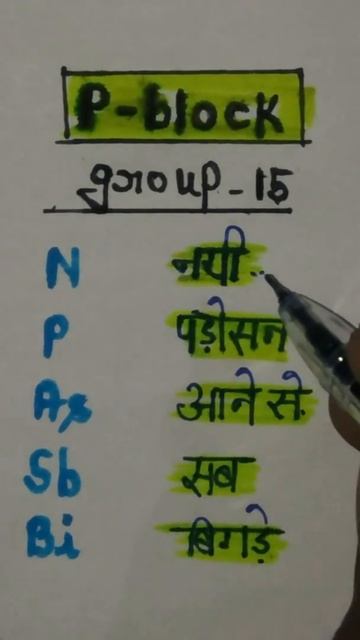 P-block
group-15
N नयी..
P पड़ोसन
As आने से
Sb सब
Bi बिगड़े